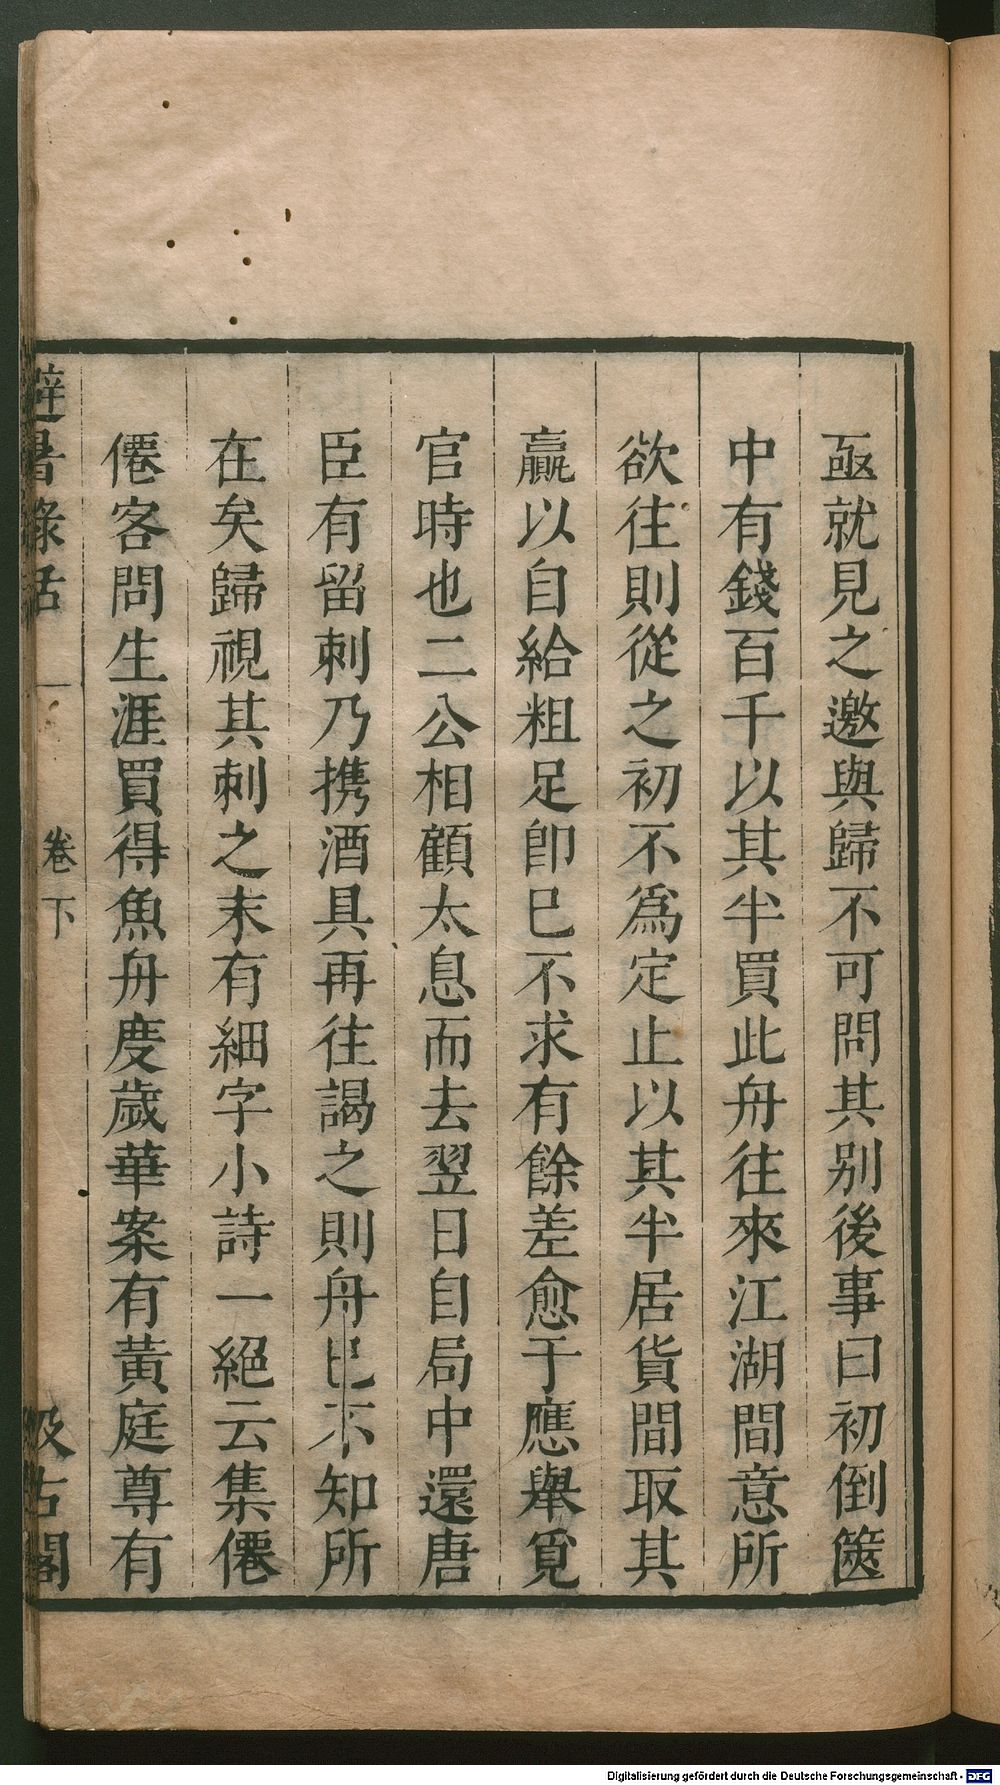 亟就見之邀與歸不可問其別後事曰初倒篋
中有錢百千以其半買此舟往來江湖間意所
欲往則從之初不爲定止以其半居貨間取其
贏以自給粗足卽巳不求有餘差愈于應舉覓
官時也二公相顧太息而去翌日自局中還唐
臣有留刺乃攜酒具再往謁之則舟巳不知所
在矣歸視其刺之末有細字小詩一絕云集僊
僊客問生涯買得魚舟度歲華案有黃庭尊有
避暑錄話
卷下
汲古閣
Digitalisierung gefördert durch die Deutsche Forschungsgemeinschaft - DFG